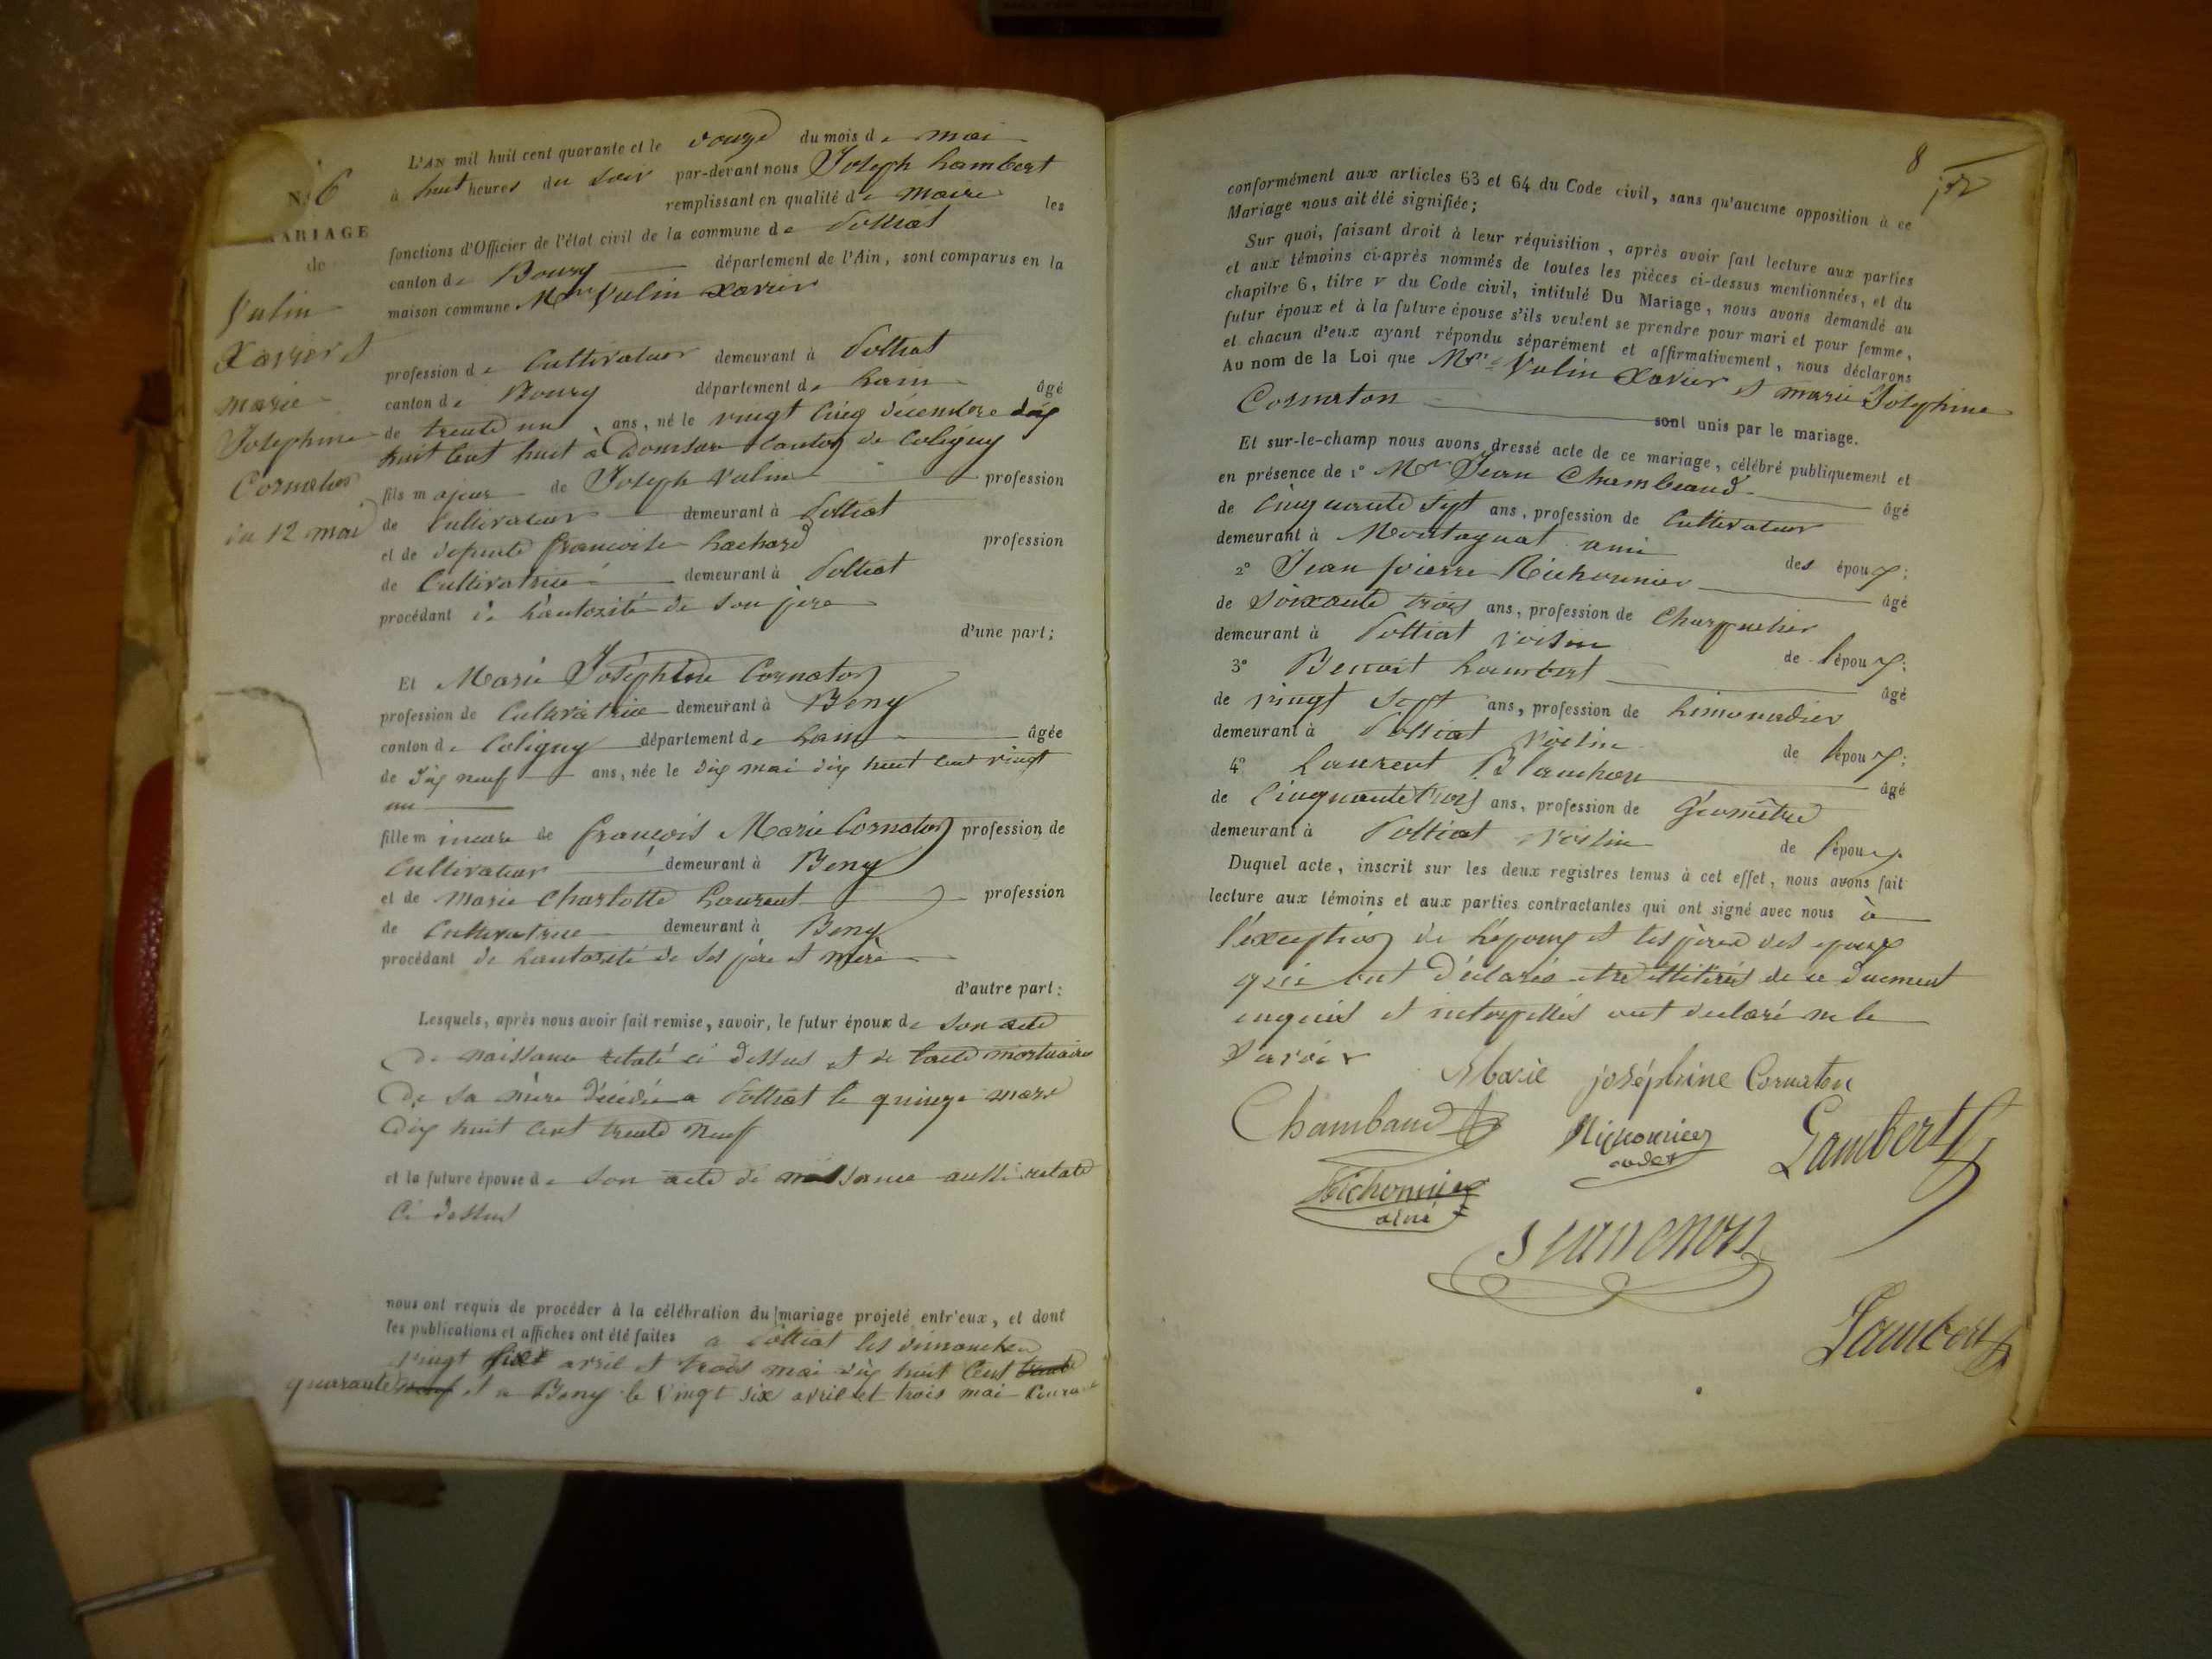 N. 6
MARIAGE
de
Vulin
Xavier et
marie
Josephine
Cornaton
du 12 mai
L'AN mil huit cent quarante et le douze du mois de mai
à huit heures du soir par-devant nous Joseph Lambert
remplissant en qualité de maire les
fonctions d'Officier de l'état civil de la commune de Polliat
canton de Bourg département de l'Ain, sont comparus en la
maison commune Mr Vulin Xavier
profession de Cultivateur demeurant à Polliat
canton de Bourg département de Lain âgé
de trente un ans, né le vingt cinq décembre dix
huit cent huit a Domsure canton de Coligny
fils majeur de Joseph Vulin profession
de Cultivateur demeurant à Polliat
et de defunte françoise Lachard profession
de Cultivatrice demeurant à Polliat
procédant de Lautorité de son père
d'une part;
Et Marie Joséphine Cornaton
profession de Cultivatrice demeurant à Beny
canton de Coligny département de Lain âgée
de dix neuf ans, née le dix mai dix huit cent vingt
un
fille mineure de françois Marie Cornaton profession de
Cultivateur demeurant à Beny
et de Marie Charlotte Laurent profession
de Cultivatrice demeurant à Beny
procédant de Lautorité de ses père et mère
d'autre part:
Lesquels, après nous avoir fait remise, savoir, le futur époux de son acte
de naissance relaté ci dessus et de lacte mortuaire
de sa mère décédée a Polliat le quinze mars
dix huit cent trente neuf
et la future épouse de son acte de naissance aussi relaté
ci dessus
nous ont requis de procéder à la célébration du mariage projeté entr'eux, et dont
les publications et affiches ont été faites a Polliat les dimanches
vingt six avril et trois mai dix huit cent trente
quarante neuf et a Beny le vingt six avril et trois mai courant
8
conformément aux articles 63 et 64 du Code civil, sans qu'aucune opposition à ce
Mariage nous ait été signifiée;
Sur quoi, faisant droit à leur réquisition, après avoir fait lecture aux parties
et aux témoins ci-après nommés de toutes les pièces ci-dessus mentionnées, et du
chapitre 6, titre v du Code civil, intitulé Du Mariage, nous avons demandé au
futur époux et à la future épouse s'ils veulent se prendre pour mari et pour femme,
et chacun d'eux ayant répondu séparément et affirmativement, nous déclarons
Au nom de la Loi que Mr Vulin Xavier et marie Josephine
Cornaton sont unis par le mariage.
Et sur-le-champ nous avons dressé acte de ce mariage, célébré publiquement et
en présence de 1° Mr Jean Chambaud âgé
de Cinquante sept ans, profession de Cultivateur
demeurant à Montagnat ami des époux;
2° Jean pierre Richonnier âgé
de Soixante trois ans, profession de Charpentier
demeurant à Polliat voisin de l'époux;
3° Benoit Lambert âgé
de vingt sept ans, profession de Limonadier
demeurant à Polliat voisin de l'époux;
4° Laurent Blanchon âgé
de Cinquante trois ans, profession de Géomètre
demeurant à Polliat voisin de l'époux.
Duquel acte, inscrit sur les deux registres tenus à cet effet, nous avons fait
lecture aux témoins et aux parties contractantes qui ont signé avec nous à
l'exception de l'époux et les pères des epoux
qui ont déclarés etre illitirés de ce duement
enquis et interpellés ont declaré ne le
savoir
Marie joséphine Cornaton
Chambaud
Richonnier
cadet
Lambert
Richonnier
ainé
Blanchon
Lambert